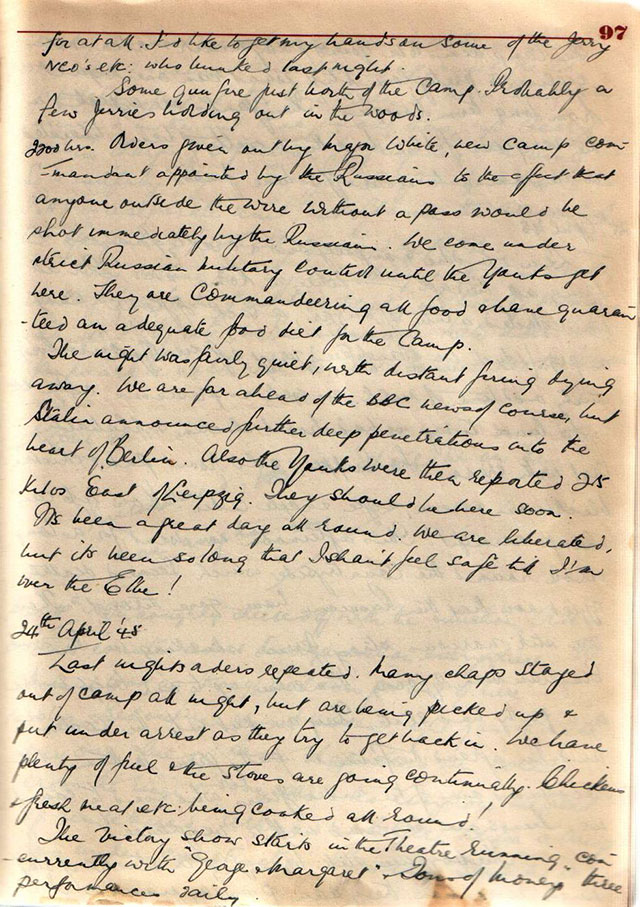 97
for at all. I'd like to get my hands on some of the Jerry
NCO's etc: who bunked last night.
Some gunfire just north of the Camp. Probably a
few Jerries holding out in the woods.
2200 hrs. Orders given out by Major White, new camp com-
-mandant appointed by the Russians to the effect that
anyone outside the wire without a pass would be
shot immediately by the Russian. We come under
strict Russian military control until the Yanks get
here. They are commandeering all food & have guaran
-teed an adequate food diet for the Camp.
The night was fairly quiet, with distant firing dying
away. We are far ahead of the BBC news of course, but
Stalin announced further deep penetrations into the
heart of Berlin. Also the Yanks were then reported 25
kilos East of Leipzig. They should be here soon.
It's been a great day all round. We are liberated,
but its been so long that I shan't feel safe till I'm
over the Elbe!
24th April '45
Last nights orders repeated. Many chaps stayed
out of camp all night, but are being picked up &
put under arrest as they try to get back in. We have
plenty of fuel & the stoves are going continually. Chickens
& fresh meat etc: being cooked all round!
The Victory show starts in the Theatre running con
-currently with "George & Margaret" & of money three
performances daily.